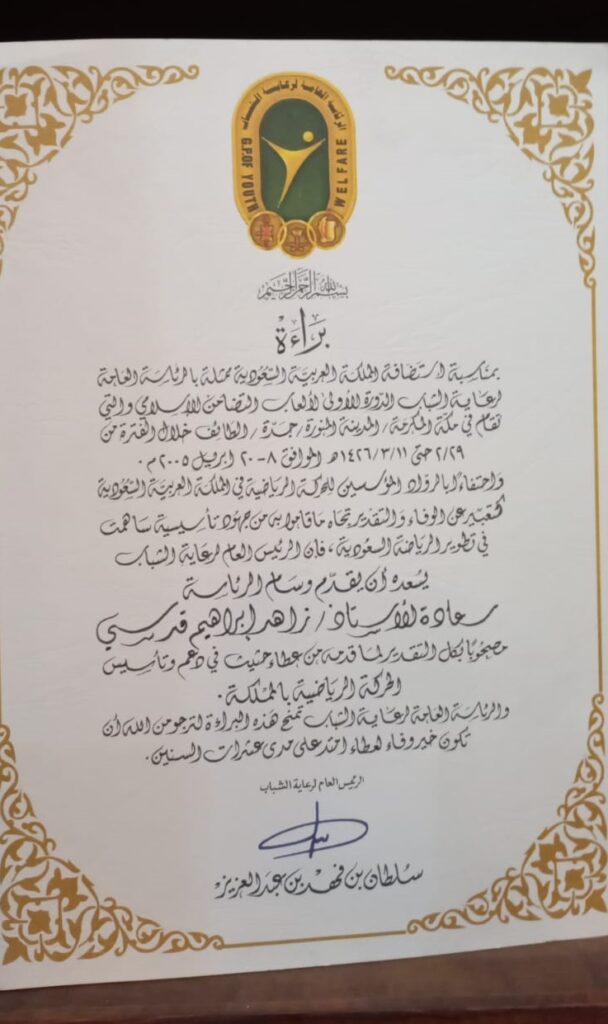 الرئاسة العامة لرعاية الشباب
G.P.OF YOUTH WELFARE
بسم الله الرحمن الرحيم
براءة
بمناسبة استضافة المملكة العربية السعودية ممثلة بالرئاسة العامة
لرعاية الشباب الدورة الأولى لألعاب التضامن الإسلامي والتي
تقام في مكة المكرمة / المدينة المنورة / جدة / الطائف خلال الفترة من
٢/٢٩ حتى ١٤٢٦/٣/١١هـ الموافق ٨-٢٠ ابريل ٢٠٠٥م .
واحتفاءً بالرواد المؤسسين للحركة الرياضية في المملكة العربية السعودية
كتعبير عن الوفاء والتقدير تجاه ما قاموا به من جهود تأسيسية ساهمت
في تطوير الرياضة السعودية ، فان الرئيس العام لرعاية الشباب
يسعده أن يقدّم وسام الرئاسة
سعادة الأستاذ / زاهد إبراهيم قدسي
مصحوبًا بكل التقدير لما قدمه من عطاء حثيث في دعم وتأسيس
الحركة الرياضية بالمملكة .
والرئاسة العامة لرعاية الشباب تمنح هذه البراءة لترجو من الله أن
تكون خير وفاء لعطاء امتد على مدى عشرات السنين .
الرئيس العام لرعاية الشباب
سلطان بن فهد بن عبد العزيز